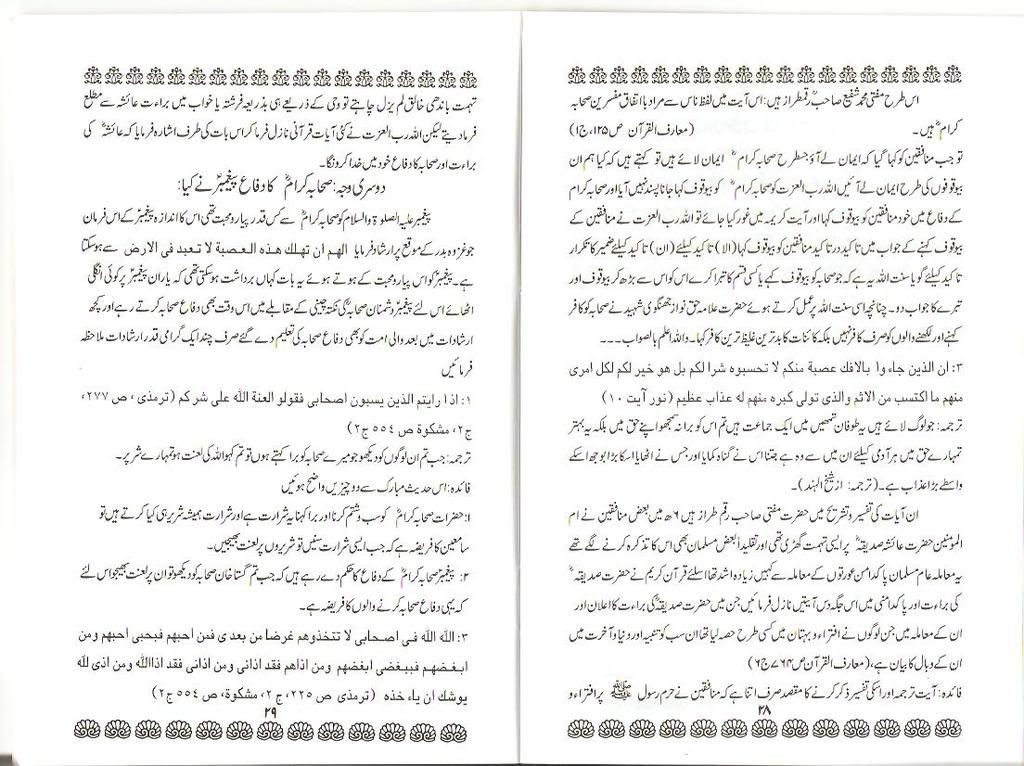 اس طرح مفتی محمد شفیع صاحبؒ رقمطراز ہیں: اس آیت میں لفظ ناس سے مراد باتفاق مفسرین صحابہ
کرامؓ ہیں۔ (معارف القرآن ص۱۲۵، ج۱)
تو جب منافقین کو کہا گیا کہ ایمان لے آؤ جسطرح صحابہ کرامؓ ایمان لائے ہیں تو کہتے ہیں کہ کیا ہم ان
بیوقوفوں کی طرح ایمان لے آئیں اللہ رب العزت کو صحابہ کرامؓ کو بیوقوف کہا جانا پسند نہیں آیا اور صحابہ کرام
کے دفاع میں خود منافقین کو بیوقوف کہا اور آیت کریمہ میں غور کیا جائے تو اللہ رب العزت نے منافقین کے
بیوقوف کہنے کے جواب میں تاکید در تاکید منافقین کو بیوقوف کہا (الا) تاکید کیلئے (ان) تاکید کیلئے ضمیر کا تکرار
تاکید کیلئے گویا سنت اللہ یہ ہے کہ جو صحابہ کو بیوقوف کہے یا کسی قسم کا تبرا کرے اس کو اس سے بڑھ کر بیوقوف اور
تبرے کا جواب دو۔ چنانچہ اسی سنت اللہ پر عمل کرتے ہوئے حضرت علامہ حق نواز جھنگوی شہید نے صحابہ کو کافر
کہنے اور لکھنے والوں کو صرف کافر نہیں بلکہ کائنات کا بدترین غلیظ ترین کافر کہا۔ واللہ اعلم بالصواب۔۔۔
۳: ان الذین جاءوا بالافك عصبة منكم لا تحسبوه شرا لكم بل هو خیر لكم لكل امری
منهم ما اكتسب من الاثم والذی تولی كبره منهم له عذاب عظیم (نور آیت ۱۰)
ترجمہ: جو لوگ لائے ہیں یہ طوفان تمھیں میں ایک جماعت ہیں تم اس کو برا نہ سمجھو اپنے حق میں بلکہ یہ بہتر
تمہارے حق میں ہر آدمی کیلئے ان میں سے وہ ہے جتنا اس نے گناہ کمایا اور جس نے اٹھایا اسکا بڑا بوجھ اسکے
واسطے بڑا عذاب ہے۔ (ترجمہ: از شیخ الہند)۔
ان آیات کی تفسیر و تشریح میں حضرت مفتی صاحب رقم طراز ہیں ۶ھ میں بعض منافقین نے ام
المؤمنین حضرت عائشہ صدیقہؓ پر ایسی تہمت گھڑی تھی اور تقلیداً بعض مسلمان بھی اس کا تذکرہ کرنے لگے تھے
یہ معاملہ عام مسلمان پاکدامن عورتوں کے معاملہ سے کہیں زیادہ اشد تھا اسلئے قرآن کریم نے حضرت صدیقہؓ
کی براءت اور پاکدامنی میں اس جگہ دس آیتیں نازل فرمائیں جن میں حضرت صدیقہؓ کی براءت کا اعلان اور
ان کے معاملہ میں جن لوگوں نے افتراء و بہتان میں کسی طرح حصہ لیا تھا ان سب کو تنبیہ اور دنیا و آخرت میں
ان کے وبال کا بیان ہے، (معارف القرآن ص۷۶۴ ج۶)
فائدہ: آیت ترجمہ اور اسکی تفسیر ذکر کرنے کا مقصد صرف اتنا ہے کہ منافقین نے حرم رسول ﷺ پر افتراء و
۲۸
تہمت باندھی خالق لم یزل چاہتے تو وحی کے ذریعے ہی بذریعہ فرشتہ یا خواب میں براءت عائشہ سے مطلع
فرما دیتے لیکن اللہ رب العزت نے کئی آیات قرآنی نازل فرما کر اس بات کی طرف اشارہ فرمایا کہ عائشہؓ کی
براءت اور صحابہ کا دفاع خود میں خدا کرونگا۔
دوسری وجہ: صحابہ کرامؓ کا دفاع پیغمبرؐ نے کیا:
پیغمبر علیہ الصلوۃ والسلام کو صحابہ کرامؓ سے کس قدر پیار و محبت تھی اس کا اندازہ پیغمبرؐ کے اس فرمان
جو غزوہ بدر کے موقع پر ارشاد فرمایا الهم ان تهلك هذه العصبة لا تعبد فی الارض سے ہو سکتا
ہے۔ پیغمبرؐ کو اس پیار و محبت کے ہوتے ہوئے یہ بات کہاں برداشت ہو سکتی تھی کہ یاران پیغمبرؐ پر کوئی انگلی
اٹھائے اس لئے پیغمبرؐ دشمنان صحابہؓ کی نکتہ چینی کے مقابلے میں اس وقت بھی دفاع صحابہ کرتے رہے اور کچھ
ارشادات میں بعد والی امت کو بھی دفاع صحابہ کی تعلیم دے گئے صرف چند ایک گرامی قدر ارشادات ملاحظہ
فرمائیں
۱: اذا رایتم الذین یسبون اصحابی فقولو العنة الله علی شر كم (ترمذی، ص ۲۷۷،
ج۲، مشكوة ص ۵۵٤ ج۲)
ترجمہ: جب تم ان لوگوں کو دیکھو جو میرے صحابہ کو برا کہتے ہوں تو تم کہو اللہ کی لعنت ہو تمہارے شر پر۔
فائدہ: اس حدیث مبارک سے دو چیزیں واضح ہوئیں
۱: حضرات صحابہ کرامؓ کو سب و شتم کرنا اور برا کہنا یہ شرارت ہے اور شرارت ہمیشہ شریر ہی کیا کرتے ہیں تو
سامعین کا فریضہ ہے کہ جب ایسی شرارت سنیں تو شریروں پر لعنت بھیجیں۔
۲: پیغمبرؐ صحابہ کرامؓ کے دفاع کا حکم دے رہے ہیں کہ جب تم گستاخان صحابہ کو دیکھو تو ان پر لعنت بھیجو اس لئے
کہ یہی دفاع صحابہ کرنے والوں کا فریضہ ہے۔
۳: الله الله فی اصحابی لا تتخذوهم غرضا من بعدی فمن احبهم فبحبی احبهم ومن
ابغضهم فببغضی ابغضهم ومن اذاهم فقد اذانی ومن اذانی فقد اذاالله ومن اذی لله
یوشك ان یاء خذه (ترمذی ص ۲۲۵، ج ۲، مشكوة، ص ۵۵٤ ج۲)
۲۹